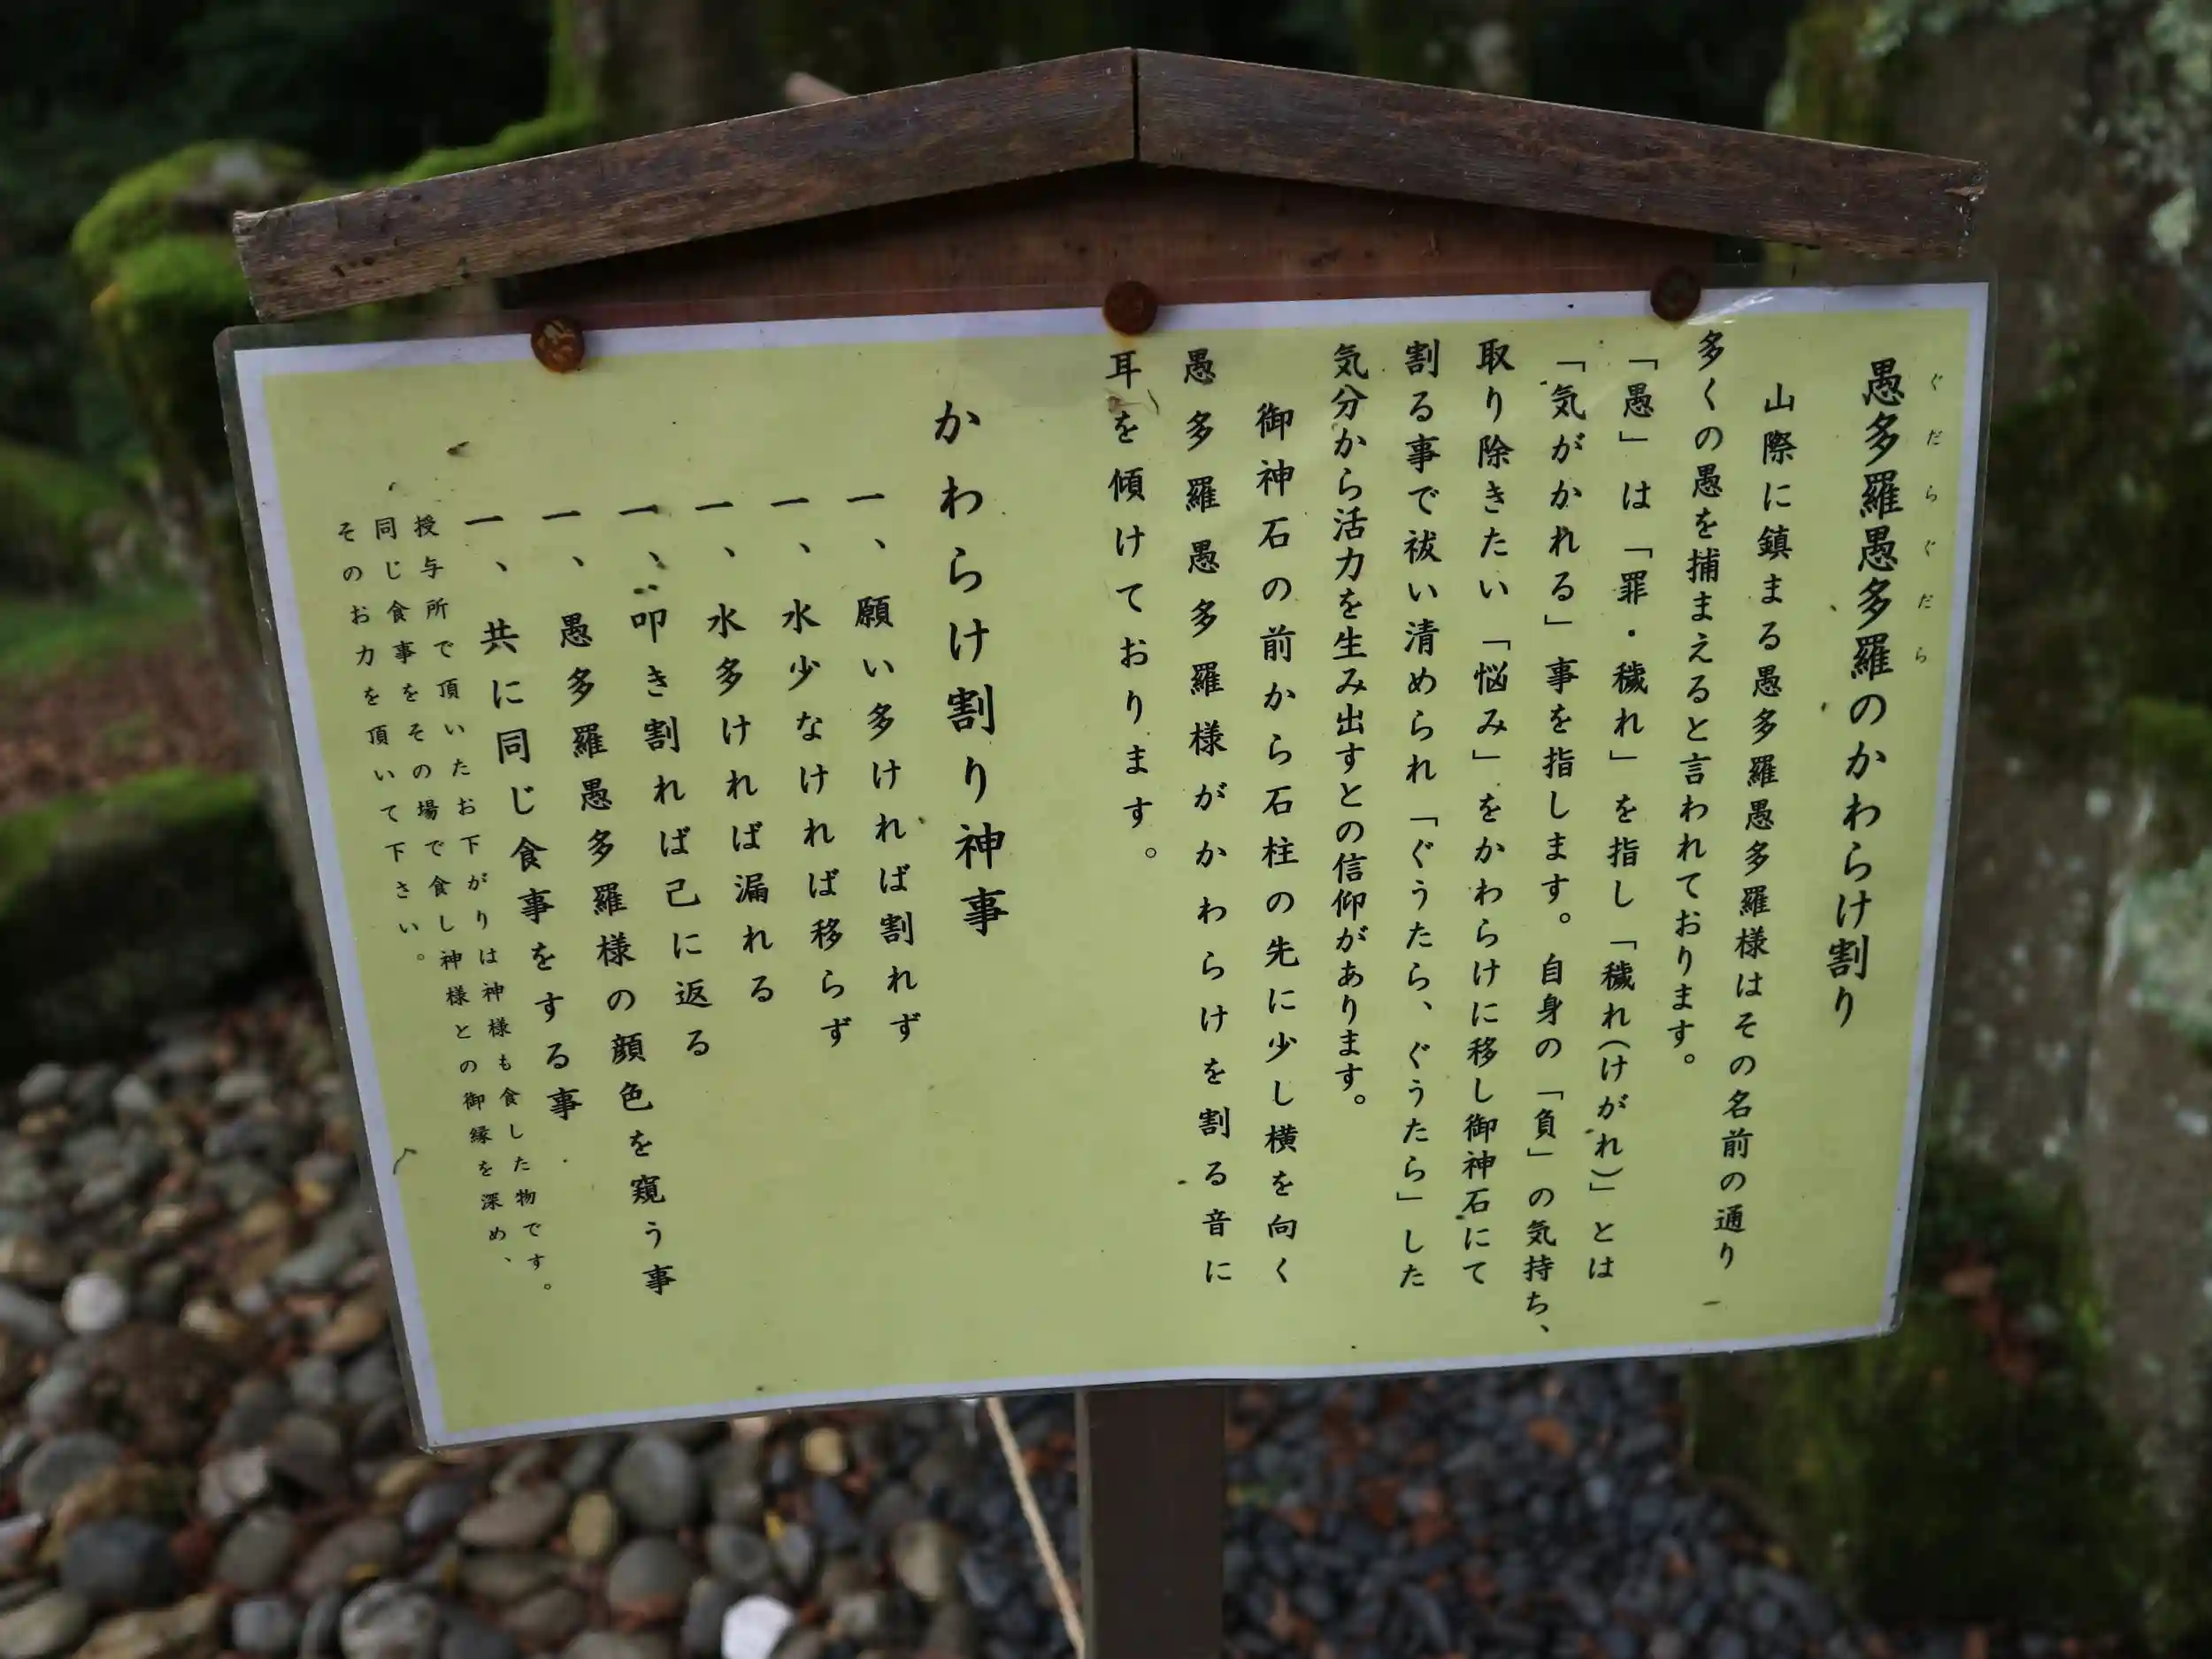 愚多羅愚多羅のかわらけ割り
ぐだらぐだら
山際に鎮まる愚多羅愚多羅様はその名前の通り
多くの愚を捕まえると言われております。
「愚」は「罪・穢れ」を指し「穢れ(けがれ)」とは
「気がかれる」事を指します。自身の「負」の気持ち、
取り除きたい「悩み」をかわらけに移し御神石にて
割る事で祓い清められ「ぐうたら、ぐうたら」した
気分から活力を生み出すとの信仰があります。
御神石の前から石柱の先に少し横を向く
愚多羅愚多羅様がかわらけを割る音に
耳を傾けております。
かわらけ割り神事
一、願い多ければ割れず
一、水少なければ移らず
一、水多ければ漏れる
一、叩き割れば己に返る
一、愚多羅愚多羅様の顔色を窺う事
一、共に同じ食事をする事
授与所で頂いたお下がりは神様も食した物です。
同じ食事をその場で食し神様との御縁を深め、
そのお力を頂いて下さい。